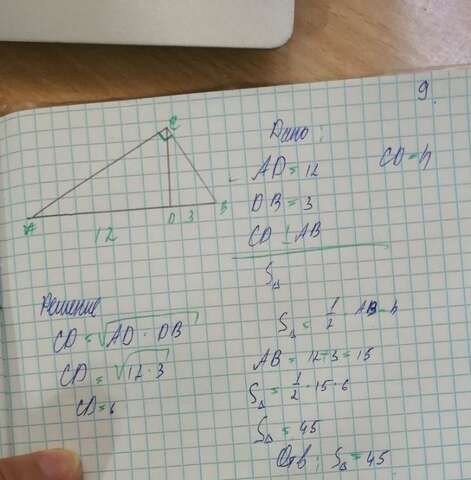 9.
C
A
D
B
12
3
Дано:
AD = 12
CD = h
DB = 3
CD ⊥ AB
S△
Решение
CD = √AD · DB
CD = √12 · 3
CD = 6
S△ = 1/2 AB · h
AB = 12 + 3 = 15
S△ = 1/2 · 15 · 6
S△ = 45
Отв: S△ = 45